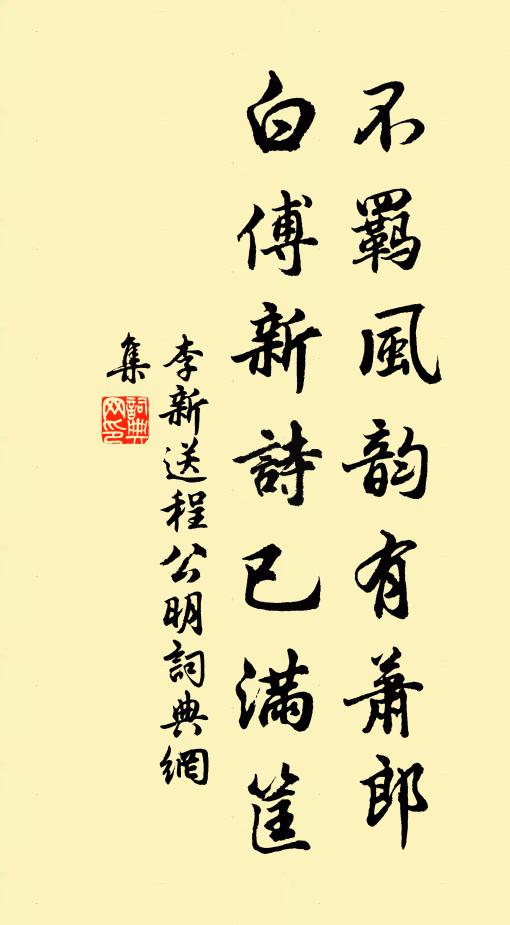 不羈風韵有蕭郎
白傅新詩已滿筐
李新送程公明詞典網
集
詞典
网印